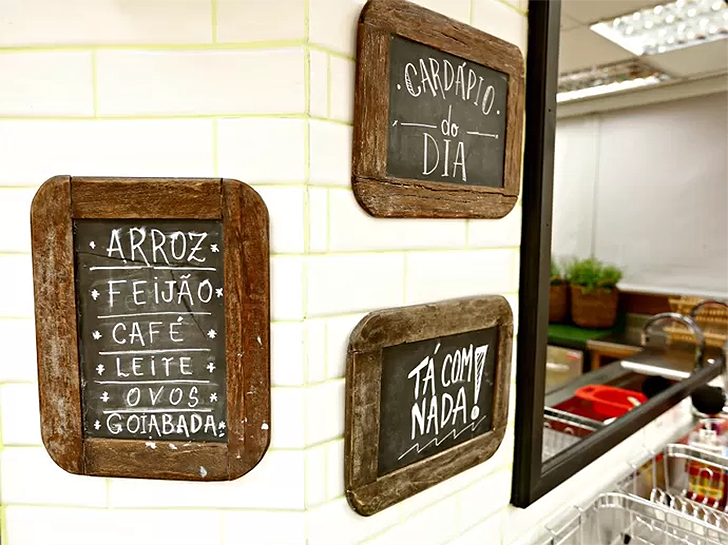 CARDÁPIO
do
DIA
ARROZ
FEIJÃO
CAFÉ
LEITE
OVOS
GOIABADA
TÁ COM
NADA!